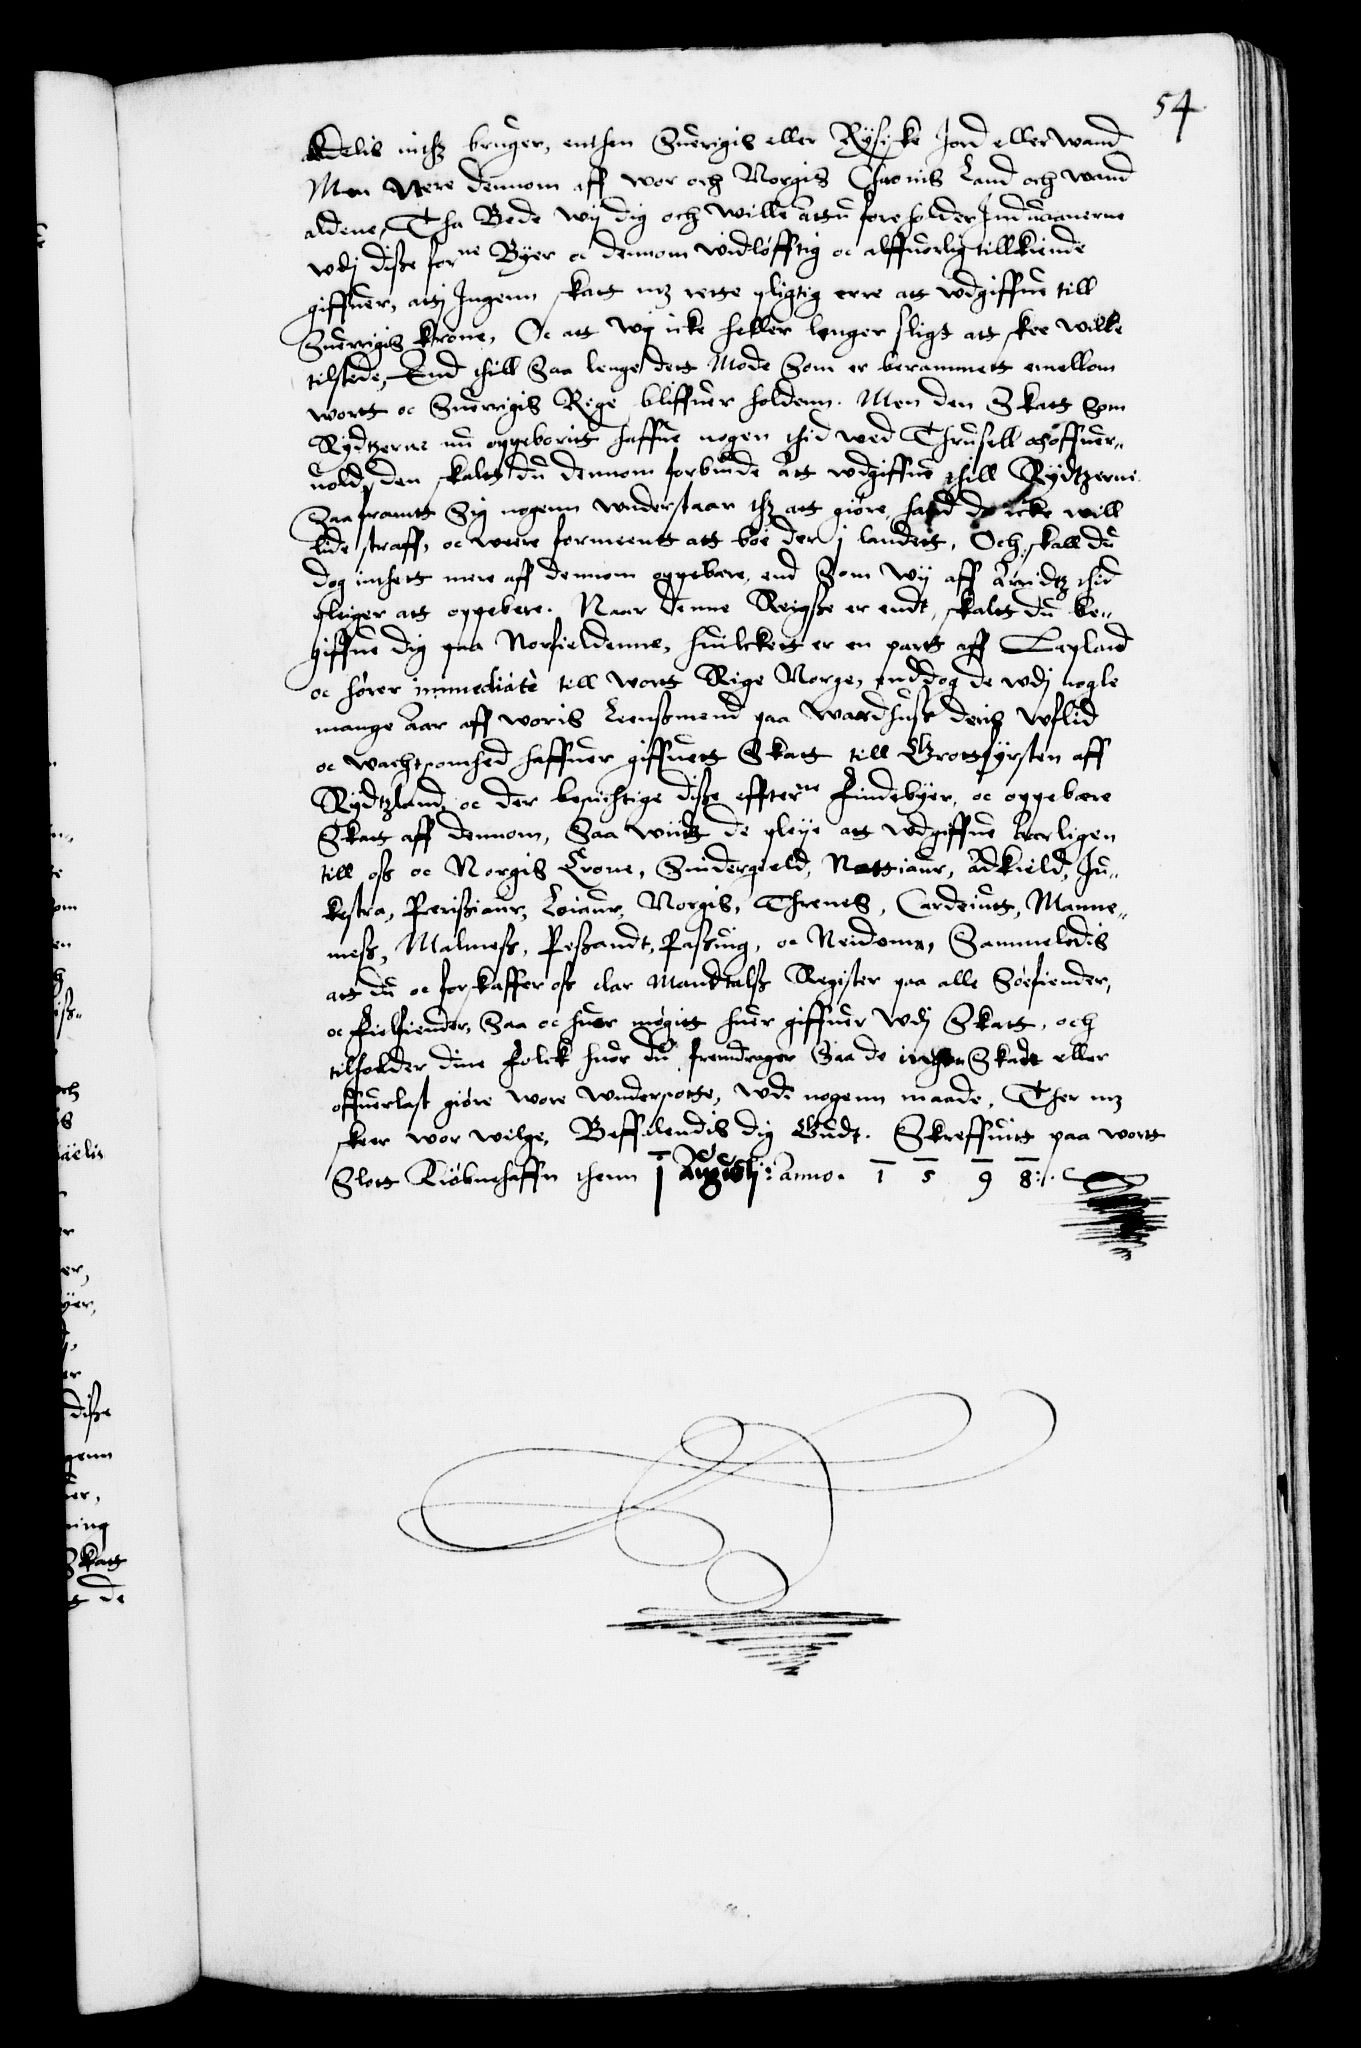 54.
aldelis inthz bruger, enthen Suerigis eller Rysiske Jord eller wand
Men Nere dennom aff wor och Norgis Chronis Land och wand
aldene, Tha Bede wij dig och wille attu foreholder Induaanerne
wdj disse forne Byer oc dennom widløfftig oc alffuorlig tillkiende
giffuer, attj Ingenn skatt mz rette pligtig erre att wdgiffue till
Suerrigis krone, Oc att wij icke heller lenger sligt att skee wille
tilstede, End thill Saa lenge dett Mode Som er berammett emellom
wortt oc Suerrigis Rige bliffuer holdenn. Men den Skatt Som
Rydtzerne nu oppeborit haffue nogen thid wed Thrusell och offuer-
uold, den skaltt du dennom forbiude Att wdgiffue thill Rydtzerne
Saaframtt Sig nogenn wnderstaar thz att giøre, haffd de icke will
lide straff, oc were formeentt att boe der j landett, Och skall du
dog inthett mere aff dennom oppebere, end Som wij aff Arridtz thid
pleiger att oppebere. Naar denne Reigsse er endt, skaltt du be-
giffue dig paa Norfieldenne, huilckett er en partt aff Lapland
oc hører immediatè till wortt Rige Norge, enddog de wdj nogle
mange aar aff woris Leenssmend paa Wardhuss deris Wflid
oc wachtsomhed haffuer giffuett Skatt till Grottfyrsten aff
Rydtzland, oc der besuchtige disse effterne Findebyer, oc oppebere
Skatt aff dennom, Saa wiitt de pleye att wdgiffue Aarligen
till oss oc Norgis Crone, Sindergield, Nottiaur, Adkield, Ju-
kestra, Perissiaur, Loiaur, Norgis, Threnes, Cardeiutt, Manne-
mess, Malmess, Pessandt, Passuig, oc Neidomr, Sammeledis
att du oc forskaffer oss clar Mandtalss Register paa alle Søefiender,
oc Fielfiender, Saa oc huor møgitt huer giffuer wdj Skatt, och
tilholder dine Folck huor du fremdrager Saa de ingen Skade eller
offuerlast giøre wore wndersotte, wdi nogenn maade, Ther mz
skeer wor wilge, Beffalendis dig Gudt. Skreffuitt paa wortt
Slott Kiøbnehaffn thenn 1 Augustj: anno. 1 5 9 8:.